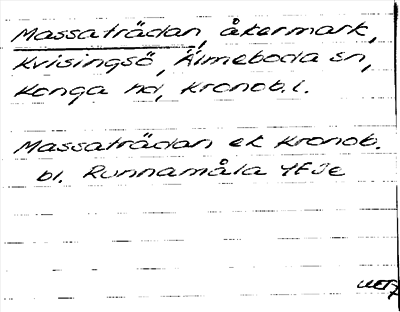 Massaträdan, åkermark,
Krisingsö, Älmeboda sn,
Konga hd, Kronob. l.
Massaträdan ek Kronob.
bl. Runnamåla 4F3e